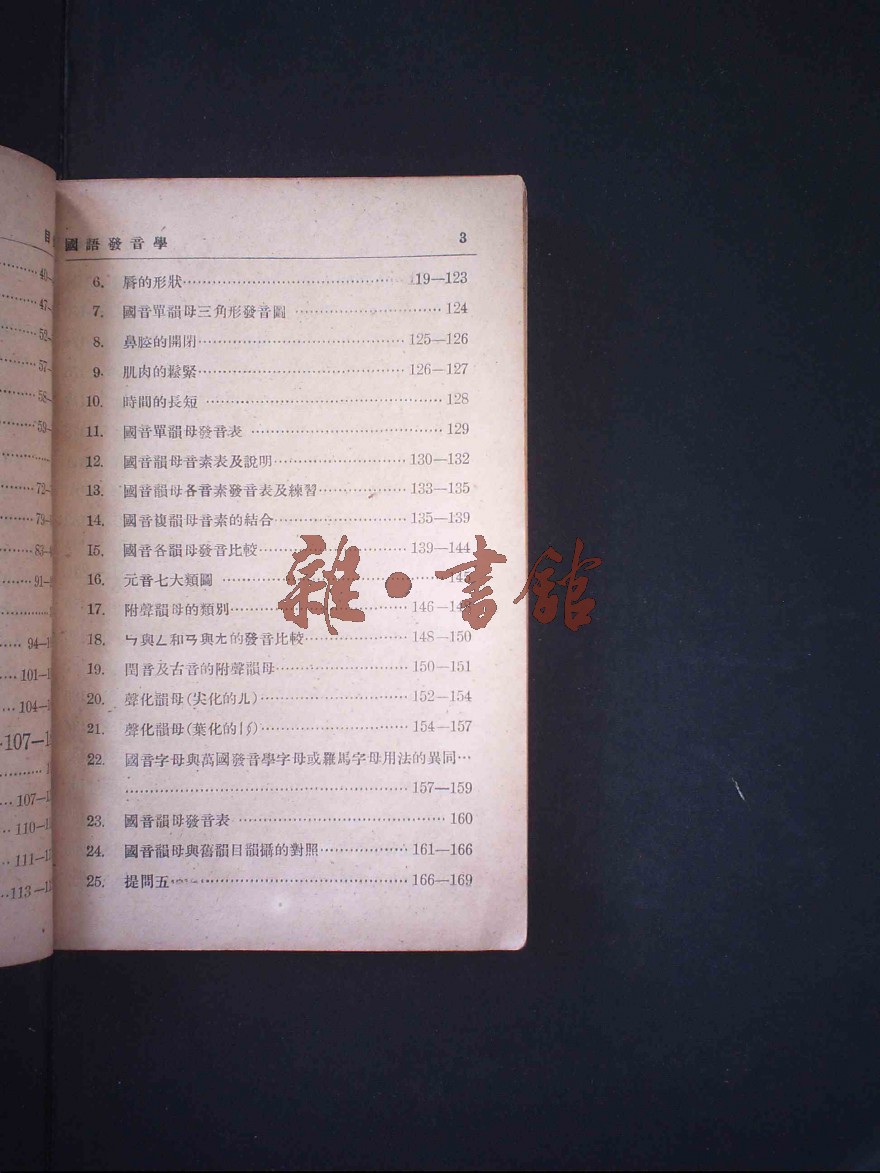 國語發音學 3
6. 唇的形狀 119—123
7. 國音單韻母三角形發音圖 124
8. 鼻腔的開閉 125—126
9. 肌肉的鬆緊 126—127
10. 時間的長短 128
11. 國音單韻母發音表 129
12. 國音韻母音素表及說明 130—132
13. 國音韻母各音素發音表及練習 133—135
14. 國音複韻母音素的結合 135—139
15. 國音各韻母發音比較 139—144
16. 元音七大類圖 145
17. 附聲韻母的類別 146—148
18. ㄣ與ㄥ和ㄢ與ㄤ的發音比較 148—150
19. 閏音及古音的附聲韻母 150—151
20. 聲化韻母(尖化的ㄦ) 152—154
21. 聲化韻母(葉化的) 154—157
22. 國音字母與萬國發音學字母或羅馬字母用法的異同
157—159
23. 國音韻母發音表 160
24. 國音韻母與舊韻目韻攝的對照 161—166
25. 提問五 166—169
雜·書館